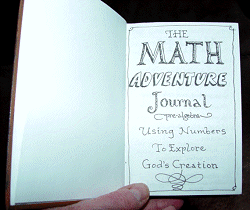 THE
MATH
ADVENTURE
Journal
pre-algebra
Using Numbers
To Explore
God's Creation